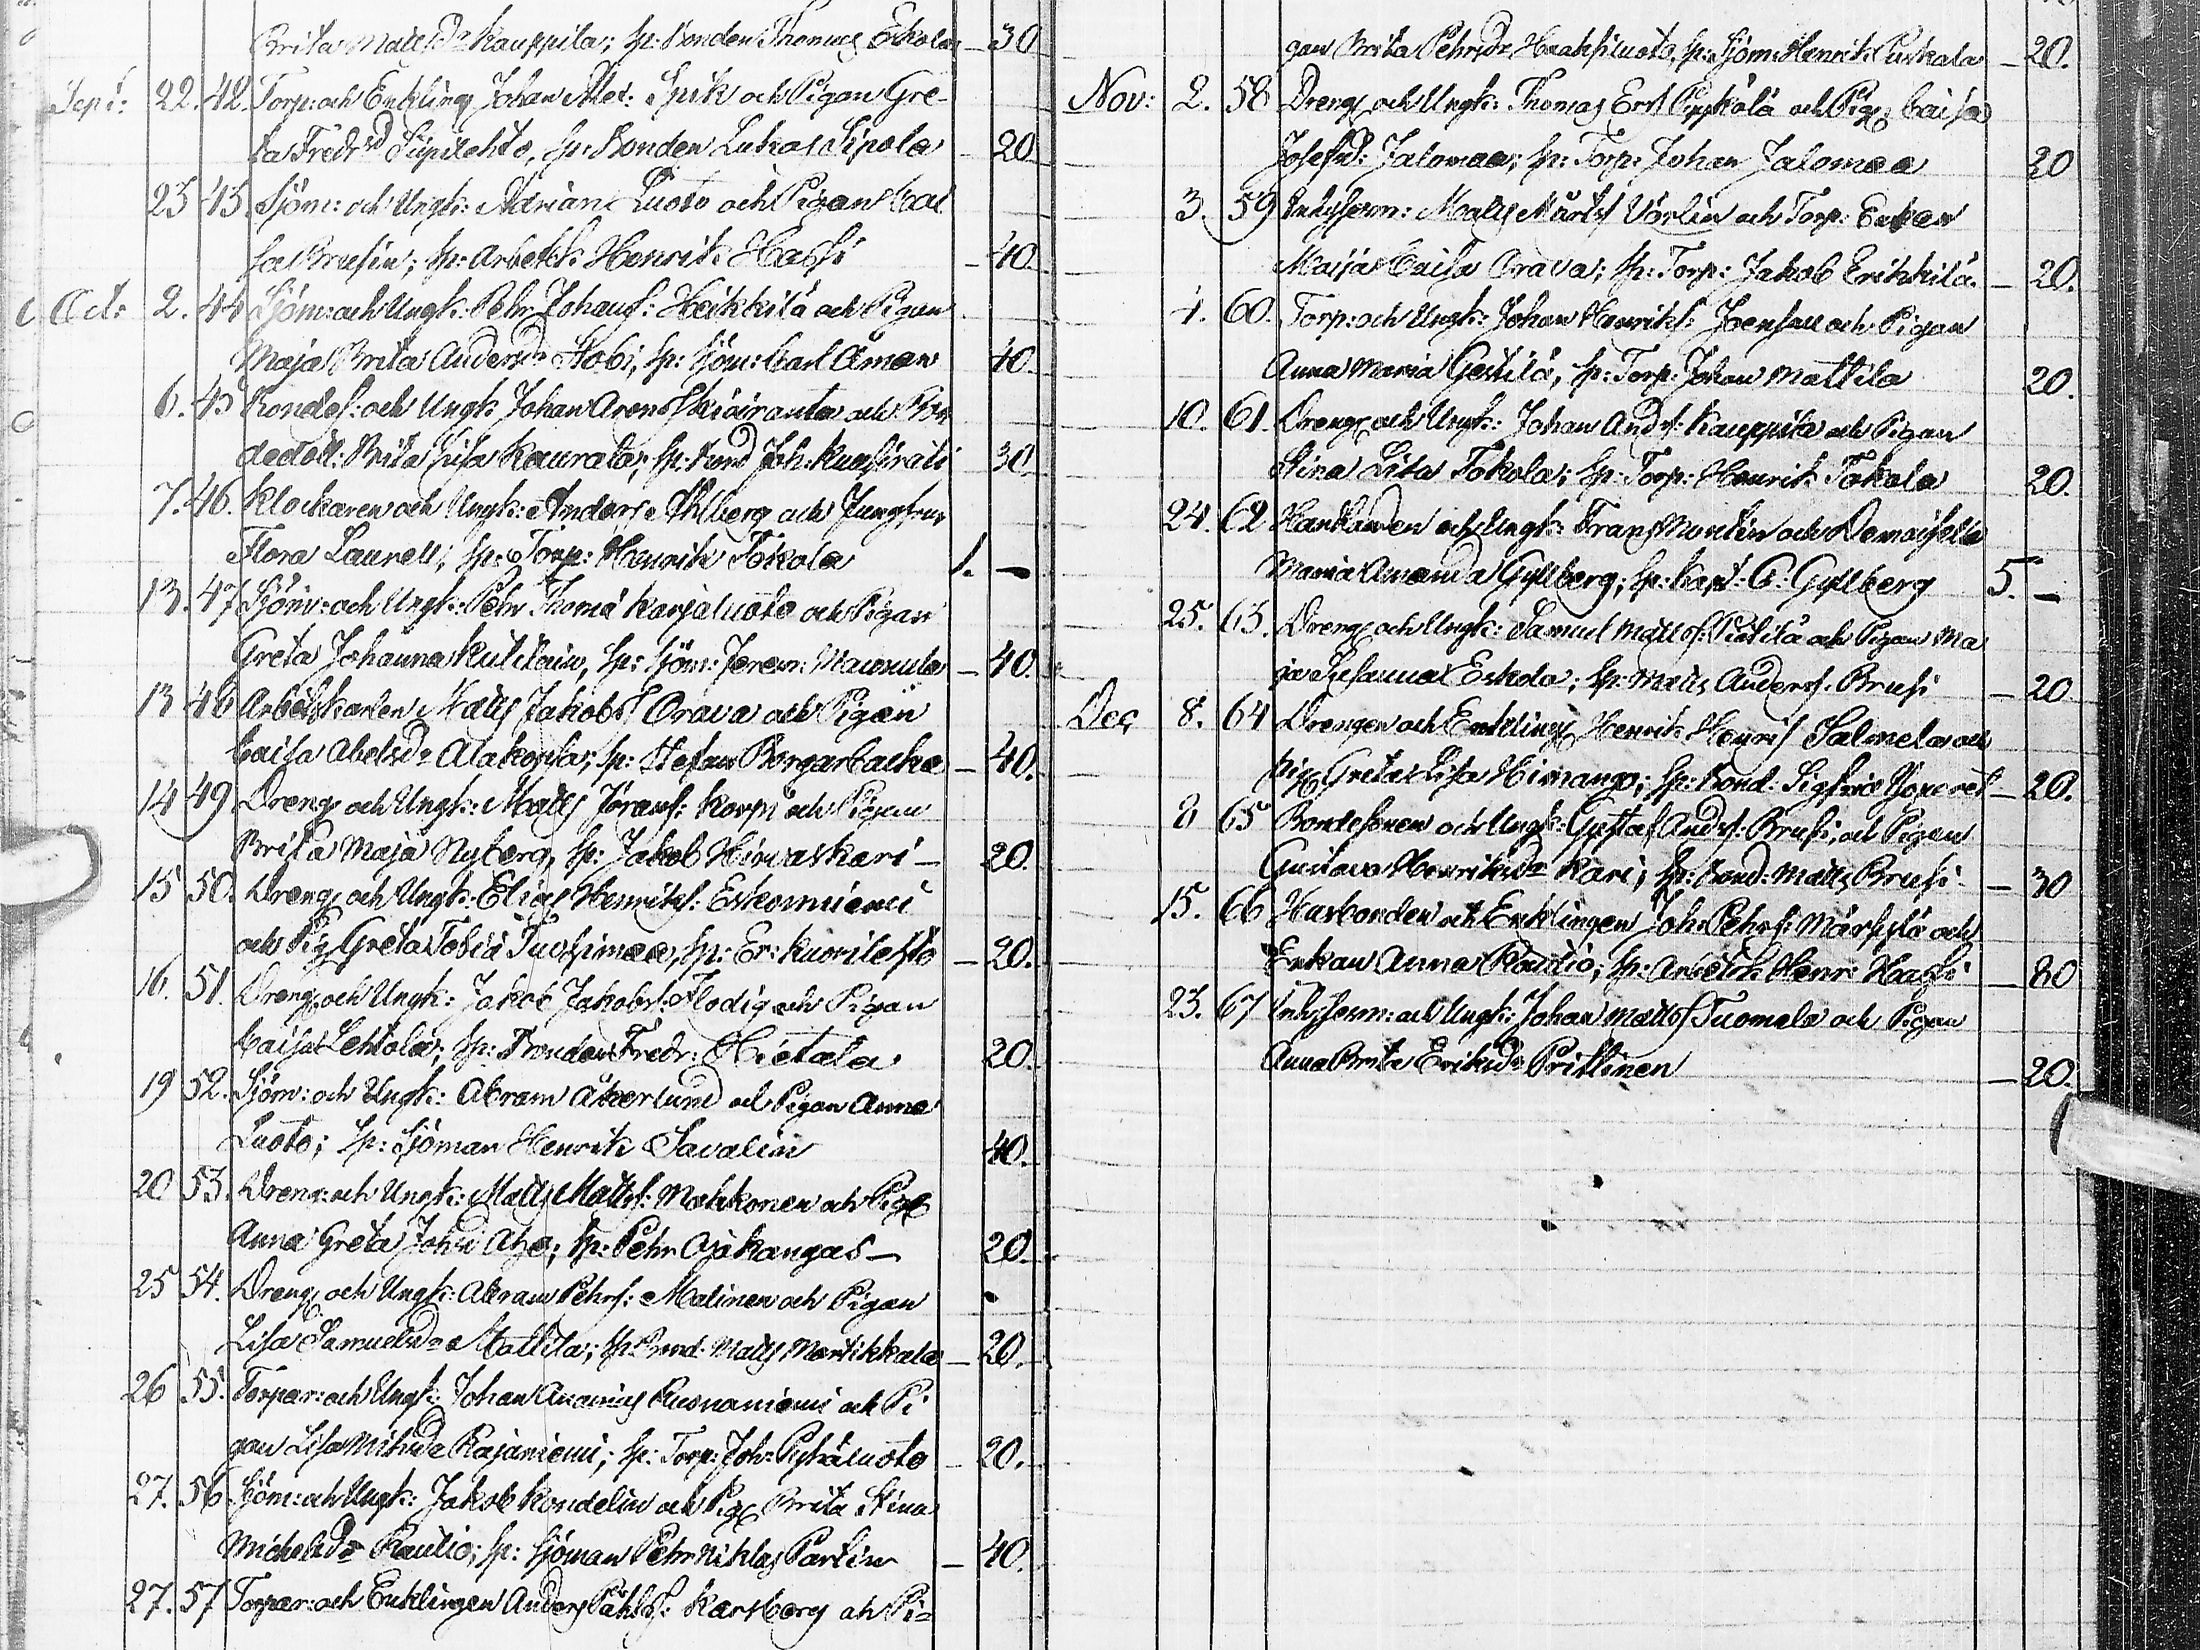 Brita Mattsdr Kauppila; sp: Bonden Thomas Eskola – 30
Sept: 22. 42. Torp: och Enkling Johan Alex: Spik och Pigan Gre-
ta Fredrsd Siipilehto, sp: Bonden Lukas Sipola – 20
23 43. Sjöm: och Ungk: Adrian Luoto och Pigan Cai
sa Brusin; sp: Arbetsk: Henrik Hassi – 40.
Oct: 2. 44 Sjöm: och Ungk: Pehr Johans: Heikkilä och Pigan
Maja Brita Andersdr Stobi, sp: Sjöm: Carl Åman 40.
6. 45 Bondes: och Ungk: Johan Arons och Bon
dedott: Brita Lisa Kaurala; sp: Bond Joh: 30
7. 46. Klockaren och Ungk: Anders Ahlberg och Jungfrur
Flora Laurell; sp: Torp: Henrik Tokola 1. –
13. 47 Sjöm: och Ungk: Pehr Thomæ Karjaluoto och Pigan
Greta Johanna, sp: Sjöm: Jerem: Maunula – 40.
13 48 Arbetskarlen Matts Jakobs Orava och Pigan
Caisa Abelsdr Alakopsa; sp: Stefan Borgarbacka – 40.
14 49 Dreng och Ungk: Matts Jörans: Korpi och Pigan
Brita Maja Nyberg, sp: Jakob Hirvaskari – 20.
15 50. Dreng och Ungk: Elias Henriks: Eskonniemi
och Pig Greta Tobiæ Tuohimaa, sp: Er: Kuorilehto – 20.
16. 51. Dreng och Ungk: Jakob Jakobs: Flodig och Pigan
Caisa Lehtola; sp: Bonden Fredr: Hietala. 20.
19 52. Sjöm: och Ungk: Abram Åkerlund och Pigan Anna
Luoto; sp: Sjöman Henrik Savalin 40.
20 53. Dreng: och Ungk: Matts Matts: Mahkonen och Pig
Anna Greta Johsd; sp: Pehr Ojakangas – 20.
25 54. Dreng och Ungk: Abram Pehrs: Malinen och Pigan
Lisa Samuelsdr Mattila; sp: Bond: Matts Martikkala – 20.
26 55. Torpar: och Ungk: Johan Ananias Kusnaniemi och Pi
gan Lisa Rajaniemi; sp: Torp: Joh: Pyhäluoto – 20.
27. 56 Sjöm: och Ungk: Jakob Rondelin och Pig Brita Stina
Michelsdr Rautio; sp: Sjöman Pehr Niklas Partin – 40.
27. 57 Torpar: och Enklingen Anders Påhls: Karlberg och Pi-
gan Brita Pehrsdr Haahsiluoto, sp: Sjöm: Henrik Puskala – 20.
Nov: 2. 58 Dreng och Ungk: Thomas Ers Pyykölä och Pig Caisa
Josefsd: Jalomaa; sp: Torp: Johan Jalomaa 20
3. 59 Inhysesm: Matts Märts Vörlin och Torp: Enkan
Maija Caisa Orava; sp: Torp: Jakob Erikkilä. – 20.
4. 60. Torp: och Ungk: Johan Henriks: Joensuu och Pigan
Anna Maria Gestilä, sp: Torp: Johan Mattila 20.
10. 61. Dreng och Ungk: Johan Ands: Kauppila och Pigan
Stina Lisa Tokola; sp: Torp: Henrik Tokola 20.
24. 62 Handlanden och Ungk: Frans Montin och Demoiselle
Maria Amanda Gyllberg; sp: Kapt: C: Gyllberg 5. –
25. 63. Dreng och Ungk: Samuel Matts: Pietilä och Pigan Ma
ja Susanna Eskola; sp: Matts Anders: Brusi – 20
Dec 8. 64 Drengen och Enkling Henrik Henris Salmela och
Pig Greta Lisa Himango; sp: Bond: Sigfrid – 20.
8 65 Bondesonen och Ungk: Gustaf Ands: Brusi, och Pigan
Gustava Henriksdr Kari; sp: Bond: Matts Brusi – 30
15. 66 Husbonden och Enklingen Joh: Pehrs: Märsylä och
Enkan Anna Rautio; sp: Arbetsk: Henr: Hassi – 80
23. 67 Inhysesm: och Ungk: Johan Matts Tuomala och Pigan
Anna Brita Eriksdr Prittinen – 20.